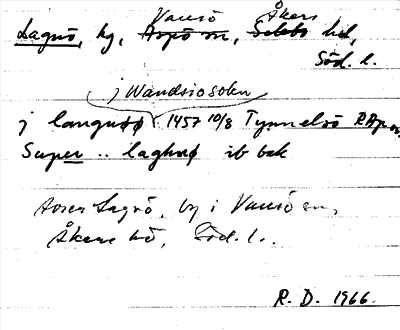 Vansö Åkers
Lagnö, by, Aspö sn, Selebo hd,
Söd. l.
j Wandsiosokn
j langnøø 1457 10/8 Tynnelsö RAp or,
Super .. laghnø ib bak
Avser Lagnö, by i Vansö sn,
Åkers hd, Söd. l..
R. D. 1966.